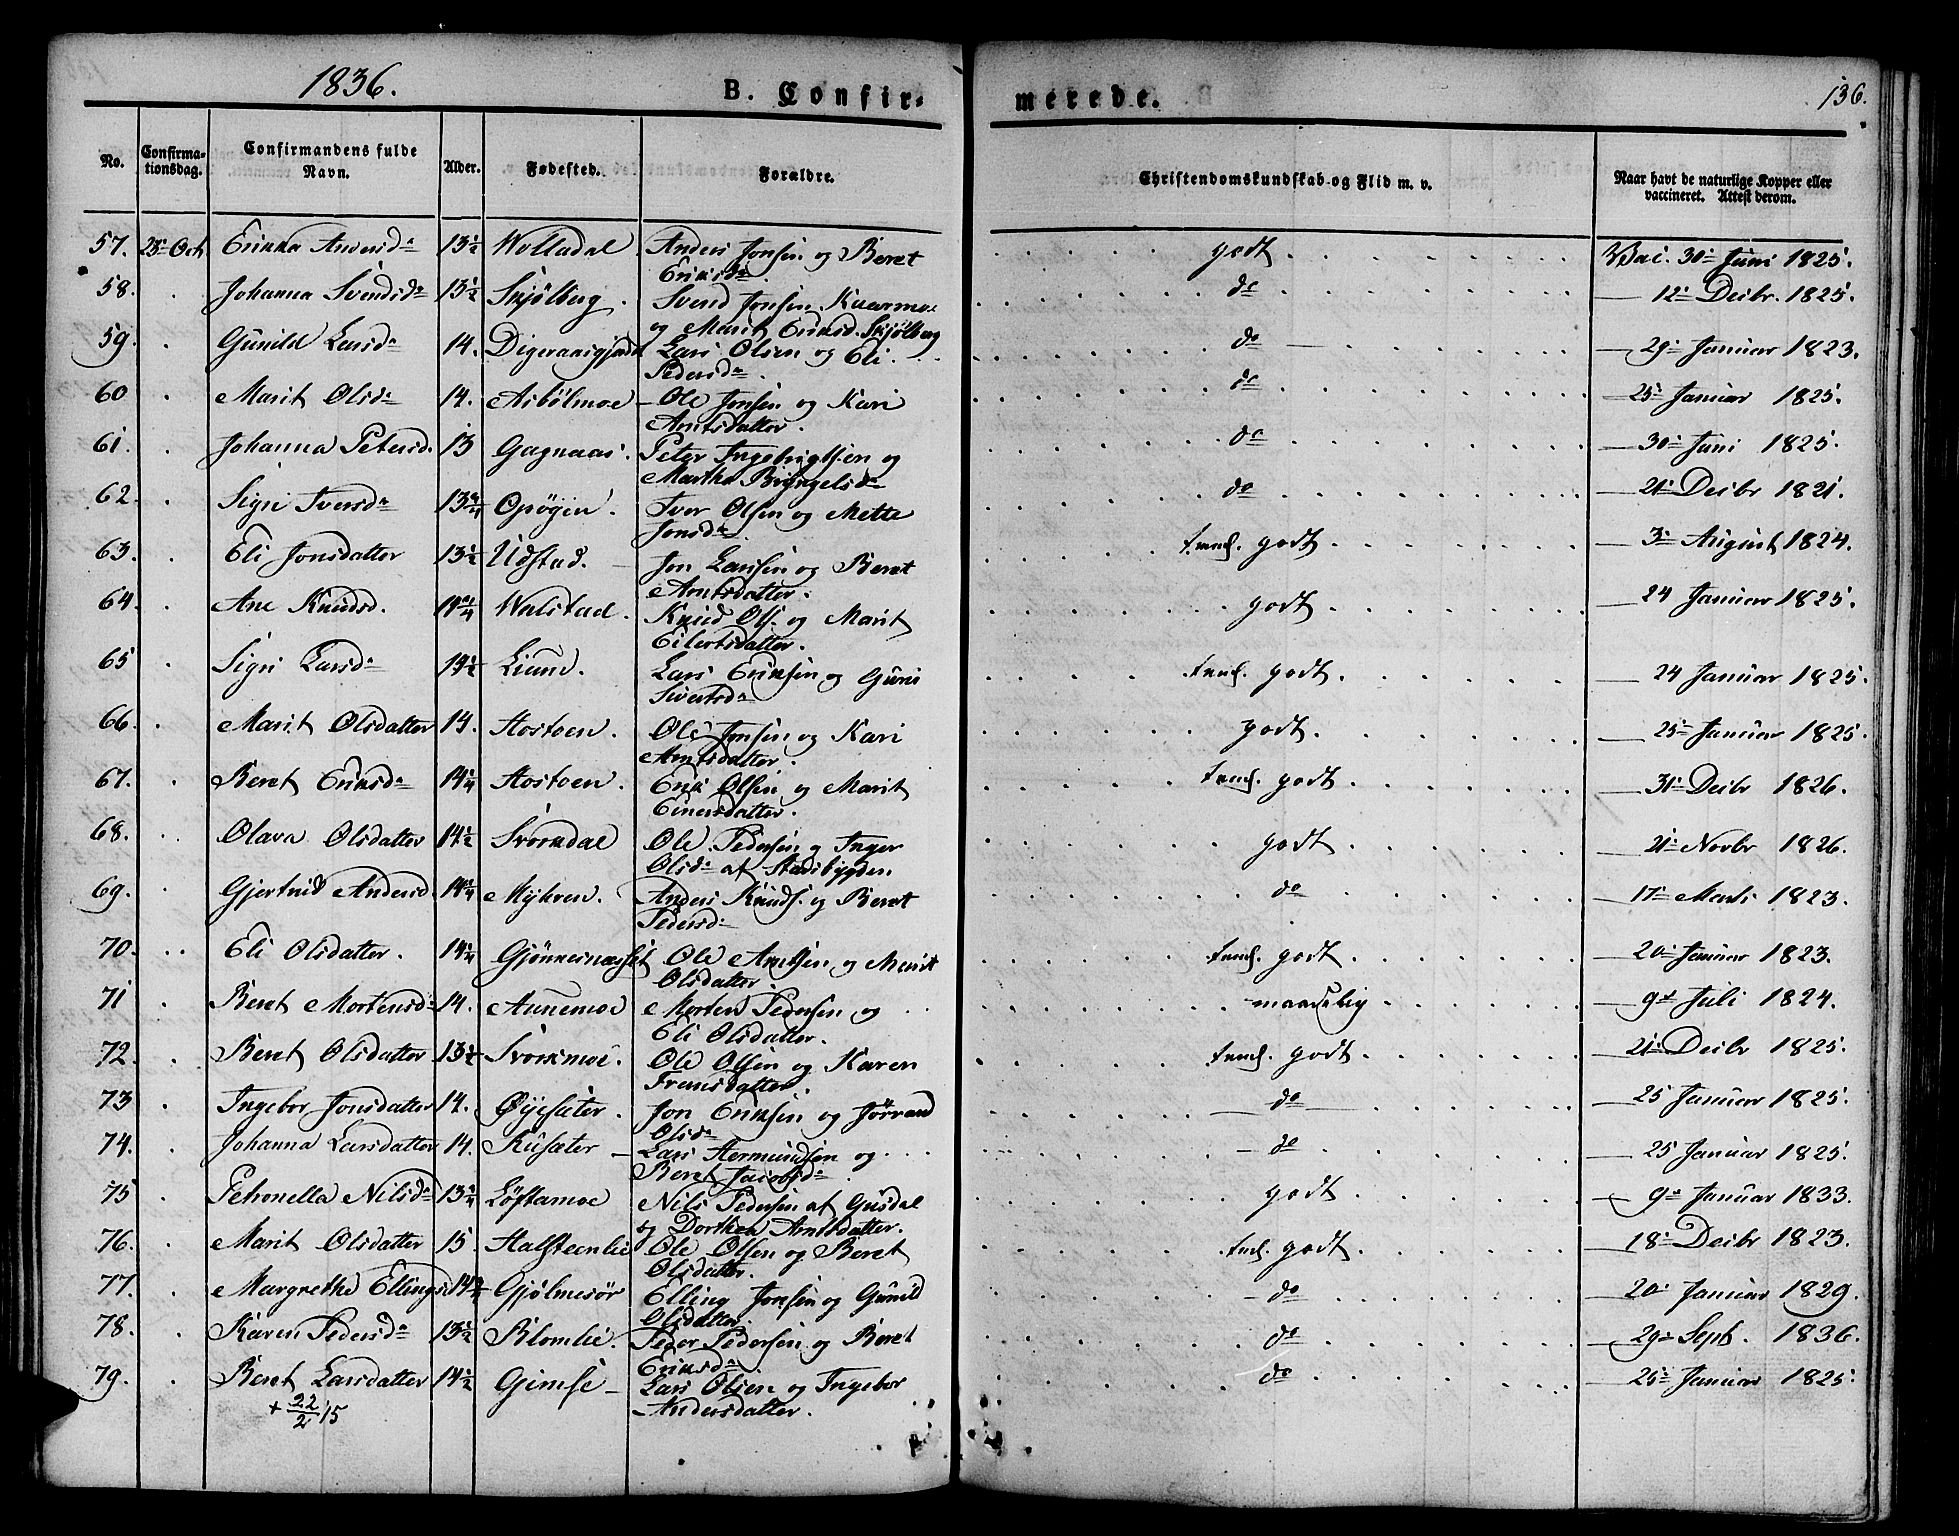 1836.
B. Confir-
merede.
136.
No.
Confirma-
tionsdag.
Confirmandens fulde
Navn.
Alder.
Fødested.
Forældre.
Christendomskundskab og Flid m. v.
Naar havt de naturlige Kopper eller
vaccineret. Attest derom.
57. 23 Oct Erikka Andersd. 13½ Wolladal Anders Jonsen og Beret godt Vac. 30 Juni 1825.
Eriksd.
58. Johanna Svendsd. 13½ Skjølberg. Svend Jonsen Kuarmo do 12 Decbr. 1825.
og Marit Eriksd. Skjølberg
59. Gunild Larsd. 14. Digeraasgjerdet Lars Olsen og Eli do 29 Januar 1823.
Pedersd.
60 Marit Olsd. 14. Asbølmoe Ole Jonsen og Kari do 25 Januar 1825.
Arntsdatter.
61. Johanna Petersd. 13 Gagnaas. Peter Ingebrigtsen og do 30 Juni 1825.
Martha Bryngelsd.
62 Sigri Iversd. 13¾ Opøgen. Iver Olsen og Mette do 21 Decbr 1821.
Jonsd.
63. Eli Jonsdatter 13½ Udstad. Jon Larsen og Beret temel. godt 3 August 1824.
Arntsdatter.
64. Ane Knudsd. 14¼ Walstad. Knud Ols. og Marit godt 24 Januar 1825.
Eilertsdatter.
65 Sigri Larsd. 14½ Liund. Lars Eriksen og Guri temel. godt 24 Januar 1825.
Sivertsd.
66. Marit Olsdatter 14. Hostoen. Ole Jonsen og Kari godt. 25 Januar 1825.
Arntsdatter.
67. Beret Eriksd. 14¼ Hostoen. Erik Olsen og Marit temel. godt 31 Decbr 1826.
Einersdatter.
68. Olava Olsdatter 14½ Svorkdal Ole Pedersen og Inger godt 21 Novbr 1826.
Olsd. af Stadsbygden
69. Gjertrud Andersd. 14¼ Myhren. Anders Knuds. og Beret do 17 Marts 1823.
Pedersd.
70. Eli Olsdatter. 14¼ Gjønnesnæsset Ole Arntsen og Marit temel. godt 20 Januar 1823.
Olsdatter.
71 Beret Mortensd. 14. Aunemoe Morten Pedersen og maadelig 9 Juli 1824.
Eli Olsdatter.
72. Beret Olsdatter 13½ Svorkmoe. Ole Olsen og Karen temel. godt 21 Decbr 1825.
Fransdatter.
73 Ingebor Jonsdatter 14. Øyesæter. Jon Eriksen og Jørrand do 25 Januar 1825.
Olsd.
74. Johanna Larsdatter 14. Rusæter Lars Hermundsen og do 25 Januar 1825.
Beret Jacobsd.
75 Petronella Nilsd. 13¾ Løftamoe Nils Pedersen af Gusdal godt 9 Januar 1833.
og Dorthea Arntsdatter.
76. Marit Olsdatter 15. Halsteenlie Ole Olsen og Beret teml. godt 18 Decbr 1823.
Olsdatter.
77. Margrethe Ellingsd 14½ Gjølmesør Elling Jonsen og Gunild do 20 Januar 1829.
Olsdatter.
78. Karen Pedersd. 13½ Blomlie. Peder Pedersen og Beret do 29 Sept. 1836.
Eriksd.
79. Beret Larsdatter 14½ Gimse Lars Olsen og Ingebor do 25 Januar 1825.
+ 22/2 15 Andersdatter.